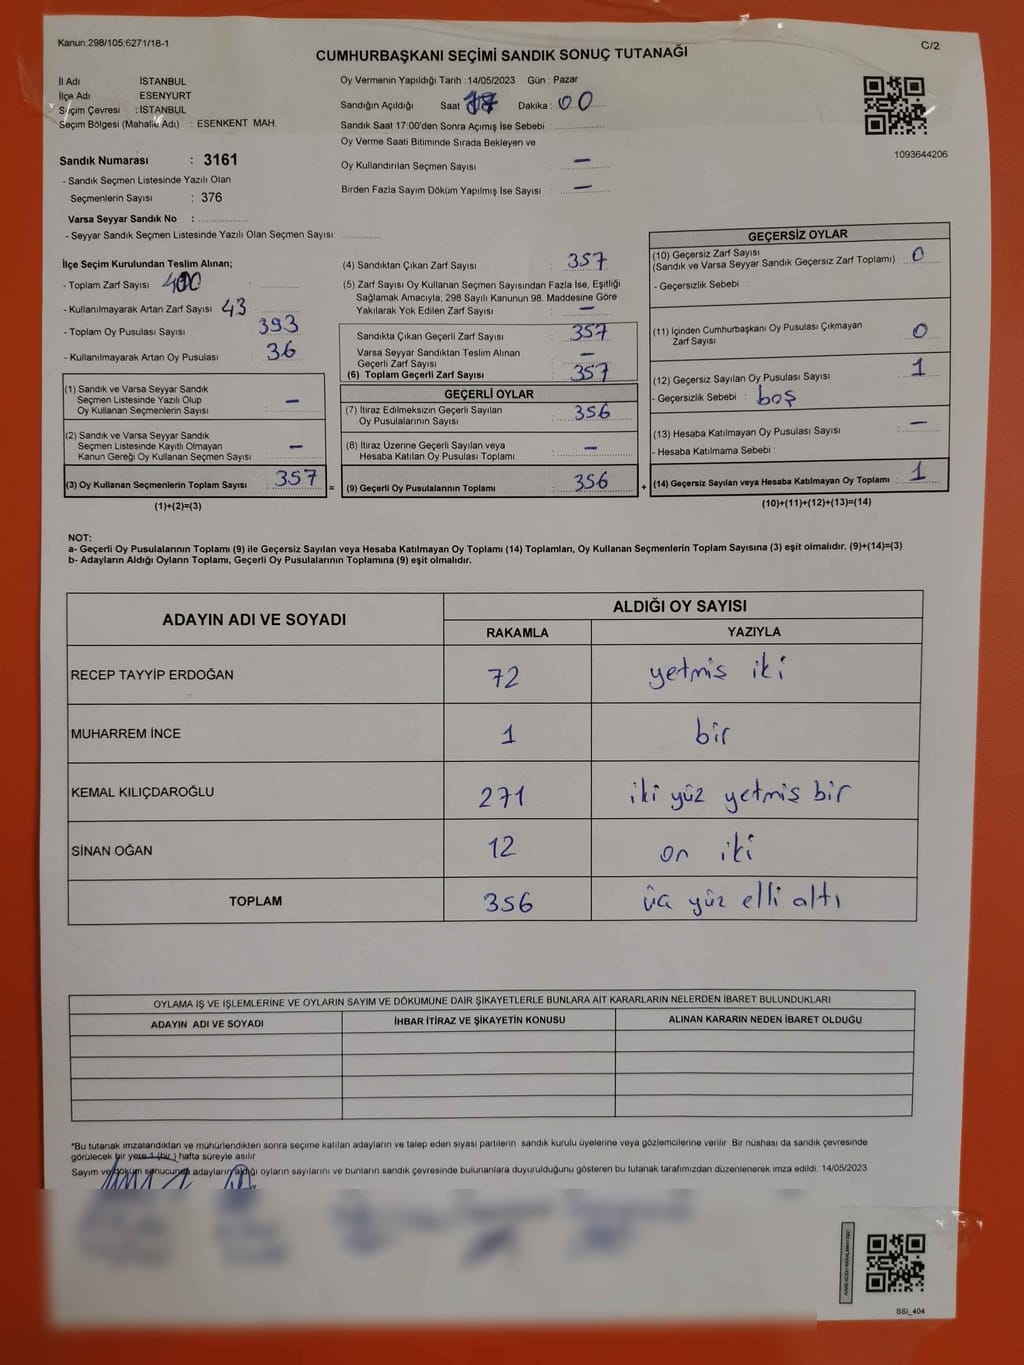 Kanun;298/105;6271/18-1
C/2
CUMHURBAŞKANI SEÇİMİ SANDIK SONUÇ TUTANAĞI
İl Adı : İSTANBUL
İlçe Adı : ESENYURT
Seçim Çevresi : İSTANBUL
Seçim Bölgesi (Mahalle Adı) : ESENKENT MAH.
Oy Vermenin Yapıldığı Tarih :14/05/2023 Gün : Pazar
Sandığın Açıldığı Saat 17 Dakika : 00
Sandık Saat 17:00'den Sonra Açımış İse Sebebi :
Oy Verme Saati Bitiminde Sırada Bekleyen ve
Oy Kullandırılan Seçmen Sayısı : —
Birden Fazla Sayım Döküm Yapılmış İse Sayısı : —
1093644206
Sandık Numarası : 3161
- Sandık Seçmen Listesinde Yazılı Olan
Seçmenlerin Sayısı : 376
Varsa Seyyar Sandık No :
- Seyyar Sandık Seçmen Listesinde Yazılı Olan Seçmen Sayısı:
İlçe Seçim Kurulundan Teslim Alınan;
- Toplam Zarf Sayısı 400 :
- Kullanılmayarak Artan Zarf Sayısı 43
- Toplam Oy Pusulası Sayısı : 393
- Kullanılmayarak Artan Oy Pusulası : 36
(1) Sandık ve Varsa Seyyar Sandık
Seçmen Listesinde Yazılı Olup
Oy Kullanan Seçmenlerin Sayısı : —
(2) Sandık ve Varsa Seyyar Sandık
Seçmen Listesinde Kayıtlı Olmayan
Kanun Gereği Oy Kullanan Seçmen Sayısı : —
(3) Oy Kullanan Seçmenlerin Toplam Sayısı : 357 =
(1)+(2)=(3)
(4) Sandıktan Çıkan Zarf Sayısı : 357
(5) Zarf Sayısı Oy Kullanan Seçmen Sayısından Fazla İse, Eşitliği
Sağlamak Amacıyla; 298 Sayılı Kanunun 98. Maddesine Göre
Yakılarak Yok Edilen Zarf Sayısı : —
Sandıkta Çıkan Geçerli Zarf Sayısı : 357
Varsa Seyyar Sandıktan Teslim Alınan
Geçerli Zarf Sayısı : —
(6) Toplam Geçerli Zarf Sayısı : 357
GEÇERLİ OYLAR
(7) İtiraz Edilmeksizin Geçerli Sayılan
Oy Pusulalarının Sayısı : 356
(8) İtiraz Üzerine Geçerli Sayılan veya
Hesaba Katılan Oy Pusulası Toplamı : —
(9) Geçerli Oy Pusulalarının Toplamı : 356 +
GEÇERSİZ OYLAR
(10) Geçersiz Zarf Sayısı
(Sandık ve Varsa Seyyar Sandık Geçersiz Zarf Toplamı) : 0
- Geçersizlik Sebebi :
(11) İçinden Cumhurbaşkanı Oy Pusulası Çıkmayan
Zarf Sayısı : 0
(12) Geçersiz Sayılan Oy Pusulası Sayısı : 1
- Geçersizlik Sebebi : boş
(13) Hesaba Katılmayan Oy Pusulası Sayısı : —
- Hesaba Katılmama Sebebi :
(14) Geçersiz Sayılan veya Hesaba Katılmayan Oy Toplamı : 1
(10)+(11)+(12)+(13)=(14)
NOT:
a- Geçerli Oy Pusulalarının Toplamı (9) ile Geçersiz Sayılan veya Hesaba Katılmayan Oy Toplamı (14) Toplamları, Oy Kullanan Seçmenlerin Toplam Sayısına (3) eşit olmalıdır. (9)+(14)=(3)
b- Adayların Aldığı Oyların Toplamı, Geçerli Oy Pusulalarının Toplamına (9) eşit olmalıdır.
ADAYIN ADI VE SOYADI
ALDIĞI OY SAYISI
RAKAMLA YAZIYLA
RECEP TAYYİP ERDOĞAN 72 yetmiş iki
MUHARREM İNCE 1 bir
KEMAL KILIÇDAROĞLU 271 iki yüz yetmiş bir
SİNAN OĞAN 12 on iki
TOPLAM 356 üç yüz elli altı
OYLAMA İŞ VE İŞLEMLERİNE VE OYLARIN SAYIM VE DÖKÜMÜNE DAİR ŞİKAYETLERLE BUNLARA AİT KARARLARIN NELERDEN İBARET BULUNDUKLARI
ADAYIN ADI VE SOYADI İHBAR İTİRAZ VE ŞİKAYETİN KONUSU ALINAN KARARIN NEDEN İBARET OLDUĞU
*Bu tutanak imzalandıktan ve mühürlendikten sonra seçime katılan adayların ve talep eden siyasi partilerin sandık kurulu üyelerine veya gözlemcilerine verilir. Bir nüshası da sandık çevresinde
görülecek bir yere 1 (bir ) hafta süreyle asılır.
Sayım ve döküm sonucunda adayların aldığı oyların sayılarını ve bunların sandık çevresinde bulunanlara duyurulduğunu gösteren bu tutanak tarafımızdan düzenlenerek imza edildi. 14/05/2023
SSI_404